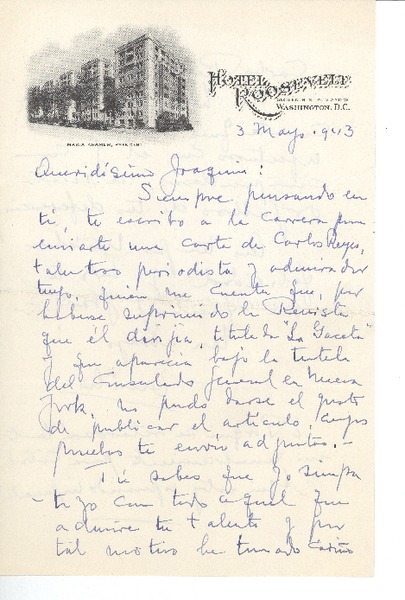 HOTEL ROOSEVELT
WASHINGTON, D.C.
3 Mayo. 943
Queridísimo Joaquín:
Siempre pensando en
ti, te escribo a la carrera para
enviarte una carta de Carlos Reyes,
talentoso periodista y admirador
tuyo, quien me cuenta que, por
haberse suprimido la Revista
que él dirijia, titulada "La Gaceta"
y que aparecía bajo la tutela
del Consulado General en Nueva
York, no pudo darse el gusto
de publicar el artículo, cuyas
pruebas te envío adjuntas.-
Tú sabes que yo simpa
-tizo con todo aquel que
admire tu talento y por
tal motivo he tomado cariño